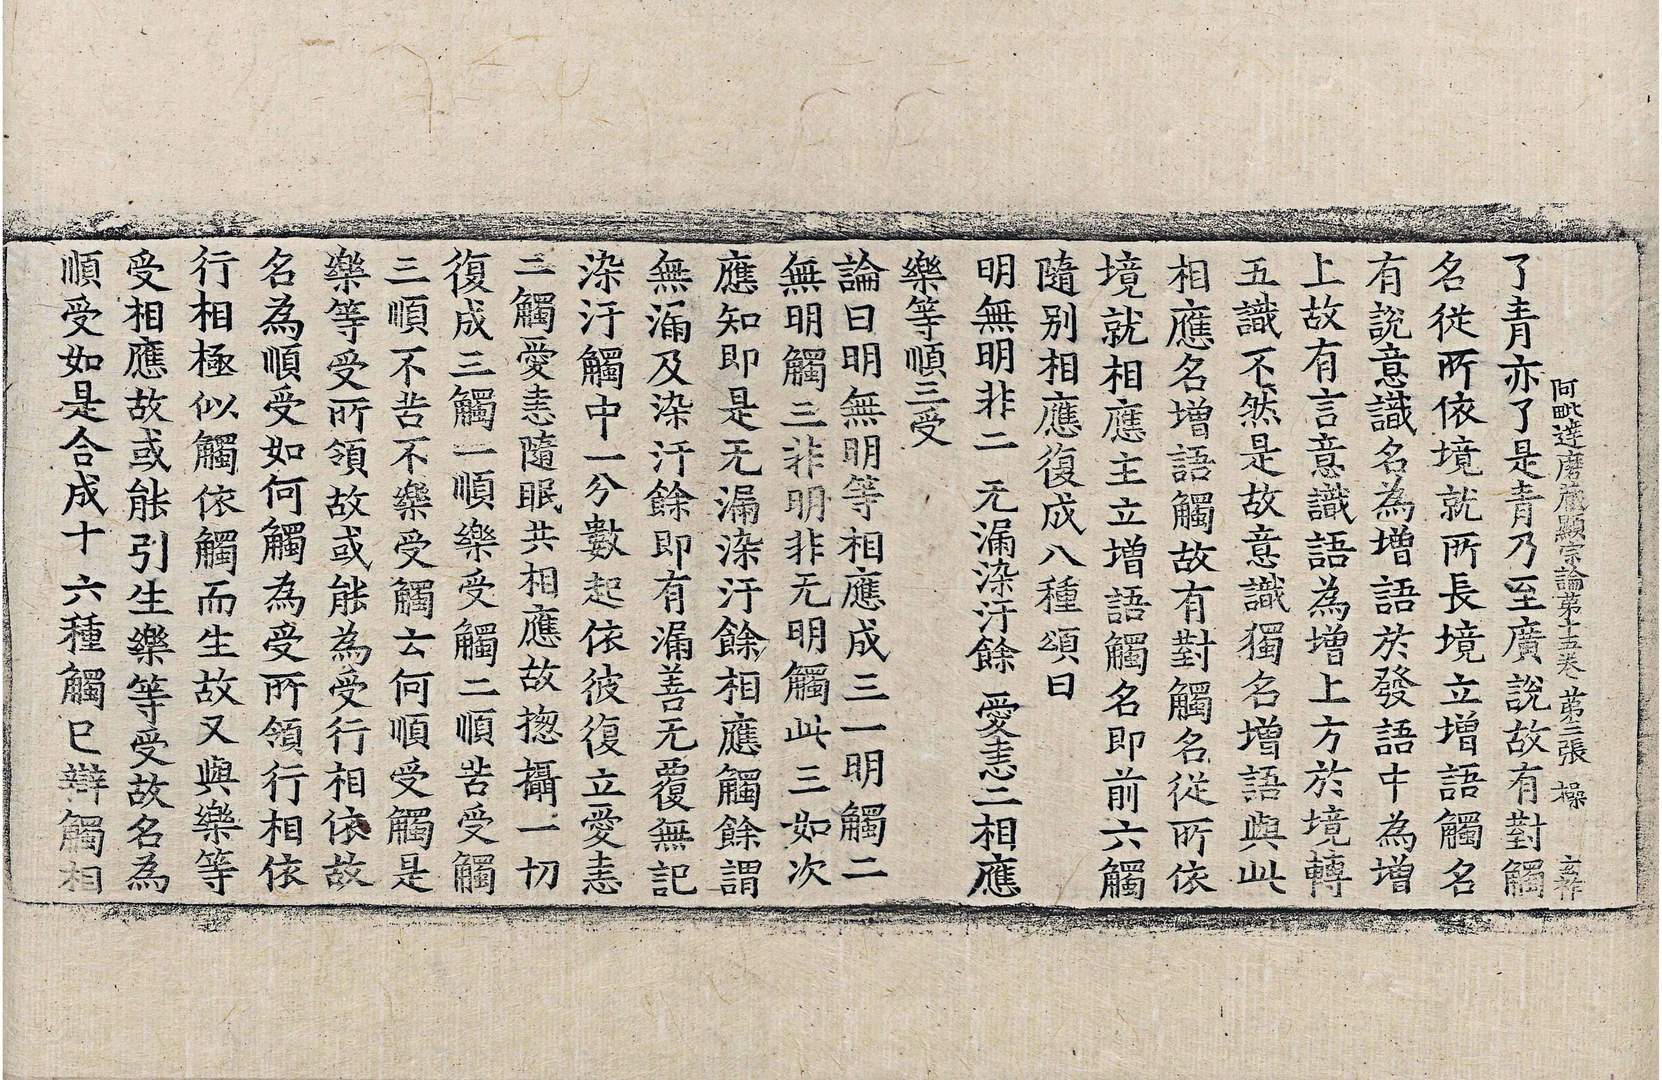 阿毗達磨藏顯宗論第十五卷 第三張 操
了青亦了是青乃至廣說故有對觸
名從所依境就所長境立增語觸名
有說意識名為增語於發語中為增
上故有言意識語為增上方於境轉
五識不然是故意識獨名增語與此
相應名增語觸故有對觸名從所依
境就相應主立增語觸名即前六觸
隨別相應復成八種頌曰
明無明非二 无漏染汙餘 愛恚二相應
樂等順三受
論曰明無明等相應成三一明觸二
無明觸三非明非无明觸此三如次
應知即是无漏染汙餘相應觸餘謂
無漏及染汙餘即有漏善无覆無記
染汙觸中一分數起依彼復立愛恚
二觸愛恚隨眠共相應故揔攝一切
復成三觸一順樂受觸二順苦受觸
三順不苦不樂受觸云何順受觸是
樂等受所領故或能為受行相依故
名為順受如何觸為受所領行相依
行相極似觸依觸而生故又與樂等
受相應故或能引生樂等受故名為
順受如是合成十六種觸已辯觸相